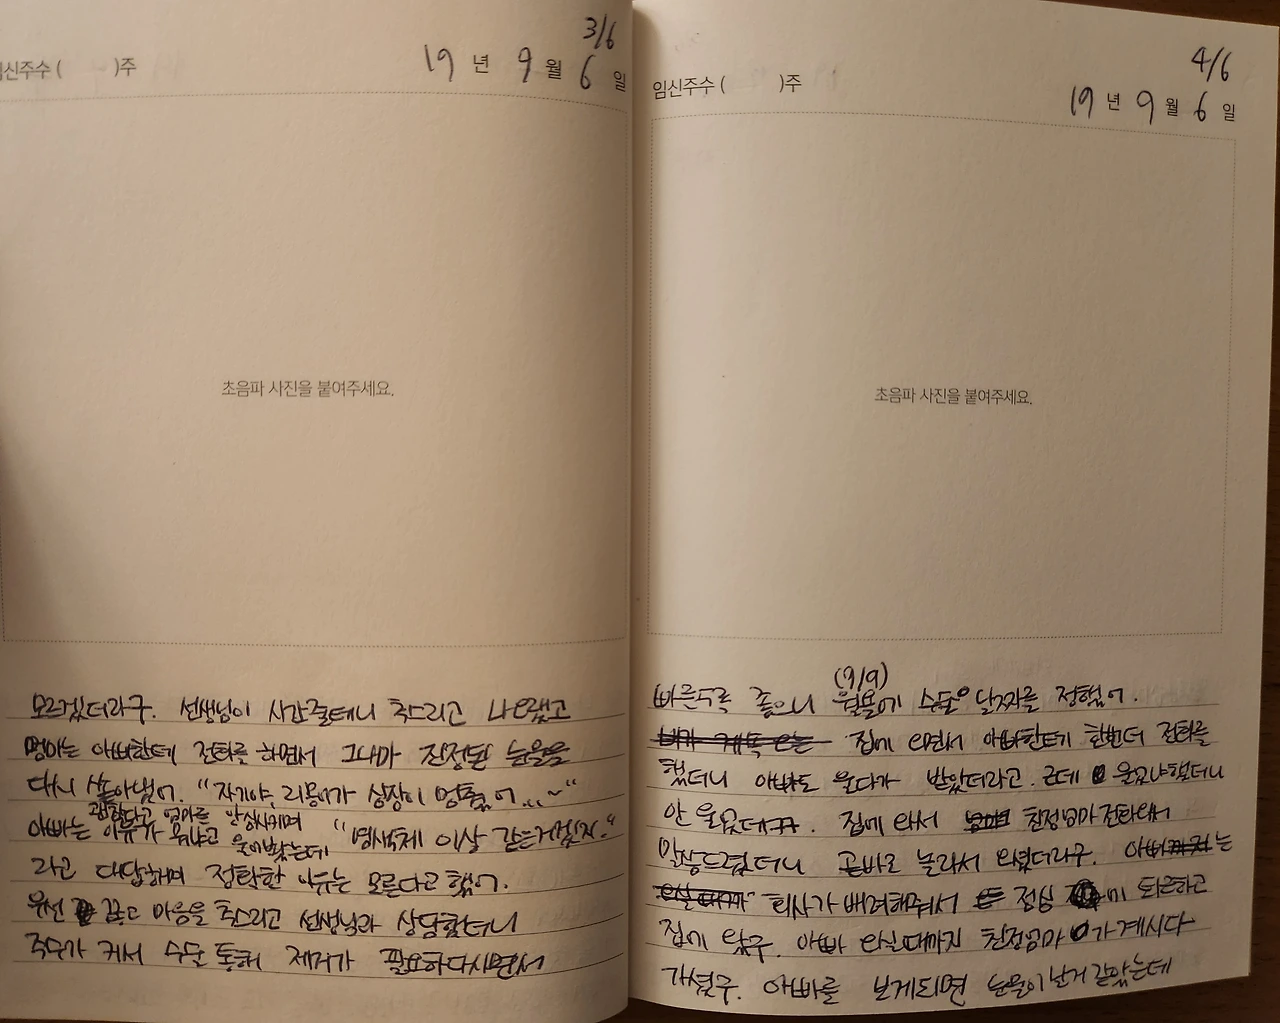 3/6
임신주수 ( )주 19 년 9 월 6 일
초음파 사진을 붙여주세요.
모르겠더라구. 선생님이 시간줄테니 추스리고 나오랬고
엄마는 아빠한테 전화를 하면서 그나마 진정된 눈물을
다시 쏟아냈어. "자기야, 리용이가 심장이 멈췄어...~"
괜찮다고 엄마를 안심시키며
아빠는 이유가 뭐냐고 물어봤는데 "염색체 이상 같은거겠지."
라고 대답하며 정확한 이유는 모른다고 했어.
우선 끊고 마음을 추스리고 선생님과 상담했더니
주수가 커서 수술 통해 제거가 필요하다시면서
4/6
임신주수 ( )주 19 년 9 월 6 일
초음파 사진을 붙여주세요.
(9/9)
빠른수록 좋으니 월욜에 수술 날짜를 정했어.
집에 오면서 아빠한테 한번더 전화를
했더니 아빠도 울다가 받았더라고. 근데 울었냐했더니
안 울었대. 집에 와서 친정엄마 전화와서
말씀드렸더니 곧바로 놀라서 오셨더라구. 아빠는
회사가 배려해줘서 점심 퇴근하고
집에 왔구. 아빠 올때까지 친정엄마가 계시다
가셨구. 아빠를 보게되면 눈물이 난거 같았는데